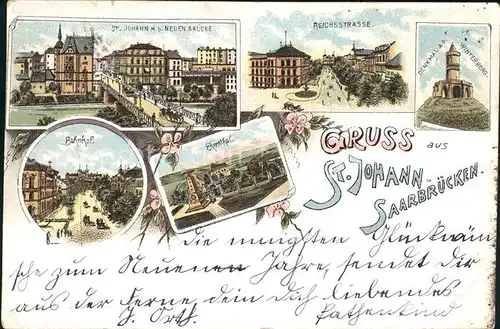 ST. JOHANN M. D. NEUEN BRÜCKE
REICHSSTRASSE.
DENKMAL A. D. WINTERBERG.
Bahnhof.
Ehrenthal.
GRUSS aus
ST. JOHANN
SAARBRÜCKEN.
Die innigsten Glückwün-
sche zum Neuenen Jahre, sendet Dir
aus der Ferne, dein Dich liebendes
J. Orth. Pathenkind